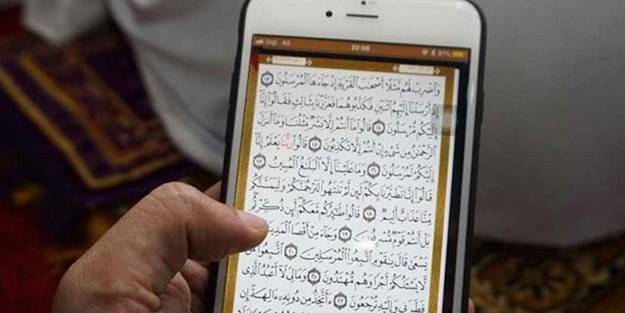 Digi 4G 20:08
وَٱضْرِبْ لَهُم مَّثَلًا أَصْحَٰبَ ٱلْقَرْيَةِ إِذْ جَآءَهَا ٱلْمُرْسَلُونَ ١٣
إِذْ أَرْسَلْنَآ إِلَيْهِمُ ٱثْنَيْنِ فَكَذَّبُوهُمَا فَعَزَّزْنَا بِثَالِثٍ فَقَالُوٓا۟ إِنَّآ
إِلَيْكُم مُّرْسَلُونَ ١٤ قَالُوا۟ مَآ أَنتُمْ إِلَّا بَشَرٌ مِّثْلُنَا وَمَآ أَنزَلَ
ٱلرَّحْمَٰنُ مِن شَىْءٍ إِنْ أَنتُمْ إِلَّا تَكْذِبُونَ ١٥ قَالُوا۟ رَبُّنَا يَعْلَمُ إِنَّآ
إِلَيْكُمْ لَمُرْسَلُونَ ١٦ وَمَا عَلَيْنَآ إِلَّا ٱلْبَلَٰغُ ٱلْمُبِينُ ١٧
قَالُوٓا۟ إِنَّا تَطَيَّرْنَا بِكُمْ لَئِن لَّمْ تَنتَهُوا۟ لَنَرْجُمَنَّكُمْ وَلَيَمَسَّنَّكُم
مِّنَّا عَذَابٌ أَلِيمٌ ١٨ قَالُوا۟ طَٰٓئِرُكُم مَّعَكُمْ أَئِن ذُكِّرْتُم
بَلْ أَنتُمْ قَوْمٌ مُّسْرِفُونَ ١٩ وَجَآءَ مِنْ أَقْصَا ٱلْمَدِينَةِ
يَسْعَىٰ قَالَ يَٰقَوْمِ ٱتَّبِعُوا۟ ٱلْمُرْسَلِينَ ٢٠ ٱتَّبِعُوا۟ مَن
لَّا يَسْـَٔلُكُمْ أَجْرًا وَهُم مُّهْتَدُونَ ٢١ وَمَالِىَ لَآ أَعْبُدُ ٱلَّذِى
فَطَرَنِى وَإِلَيْهِ تُرْجَعُونَ ٢٢ ءَأَتَّخِذُ مِن دُونِهِۦٓ ءَالِهَةً إِن